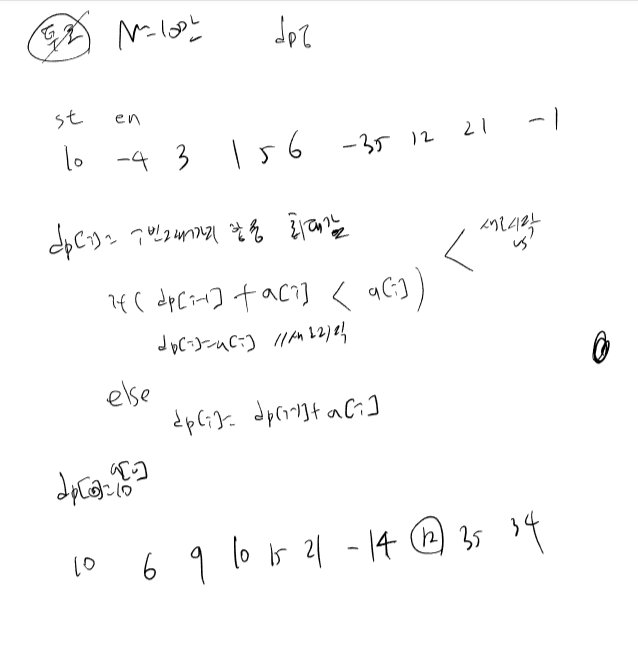 투포 N=100만 dp?
st en
10 -4 3 1 5 6 -35 12 21 -1
dp[i]= i번째까지 최대값
if( dp[i-1] + a[i] < a[i])
dp[i]=a[i] //
else
dp[i]= dp[i-1]+a[i]
a[0]
dp[0]=10
10 6 9 10 15 21 -14 12 35 34